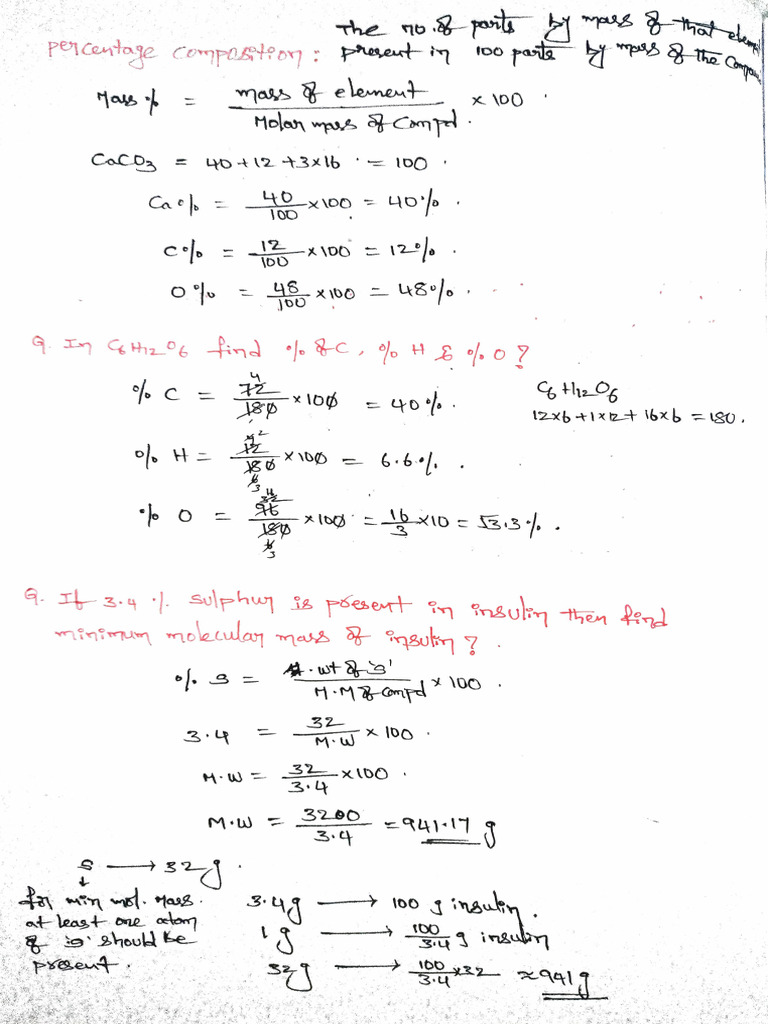 The no. of parts by mass of that elem
percentage composition: present in 100 parts by mass of the Compou
Mass % = mass of element / Molar mass of Compd. × 100 .
CaCO3 = 40+12+3×16 . = 100 .
Ca% = 40/100 ×100 = 40% .
C% = 12/100 ×100 = 12% .
O% = 48/100 ×100 = 48% .
Q. In C6H12O6 find % of C, % H & % O?
% C = 72/180 ×100 = 40% .
C6H12O6
12×6+1×12+16×6 = 180.
% H = 12/180 ×100 = 6.6% .
% O = 96/180 ×100 = 16/3 ×10 = 53.3% .
Q. If 3.4 % sulphur is present in insulin then find
minimum molecular mass of insulin? .
% S = .wt of 'S' / M.M of compd ×100 .
3.4 = 32/M.W × 100 .
M.W = 32/3.4 ×100 .
M.W = 3200/3.4 = 941.17 g
S → 32g .
↓
for min mol. Mass .
at least one atom
of 's' should be
present .
3.4g → 100 g insulin .
1g → 100/3.4 g insulin
32g → 100/3.4 ×32 ≈ 941 g